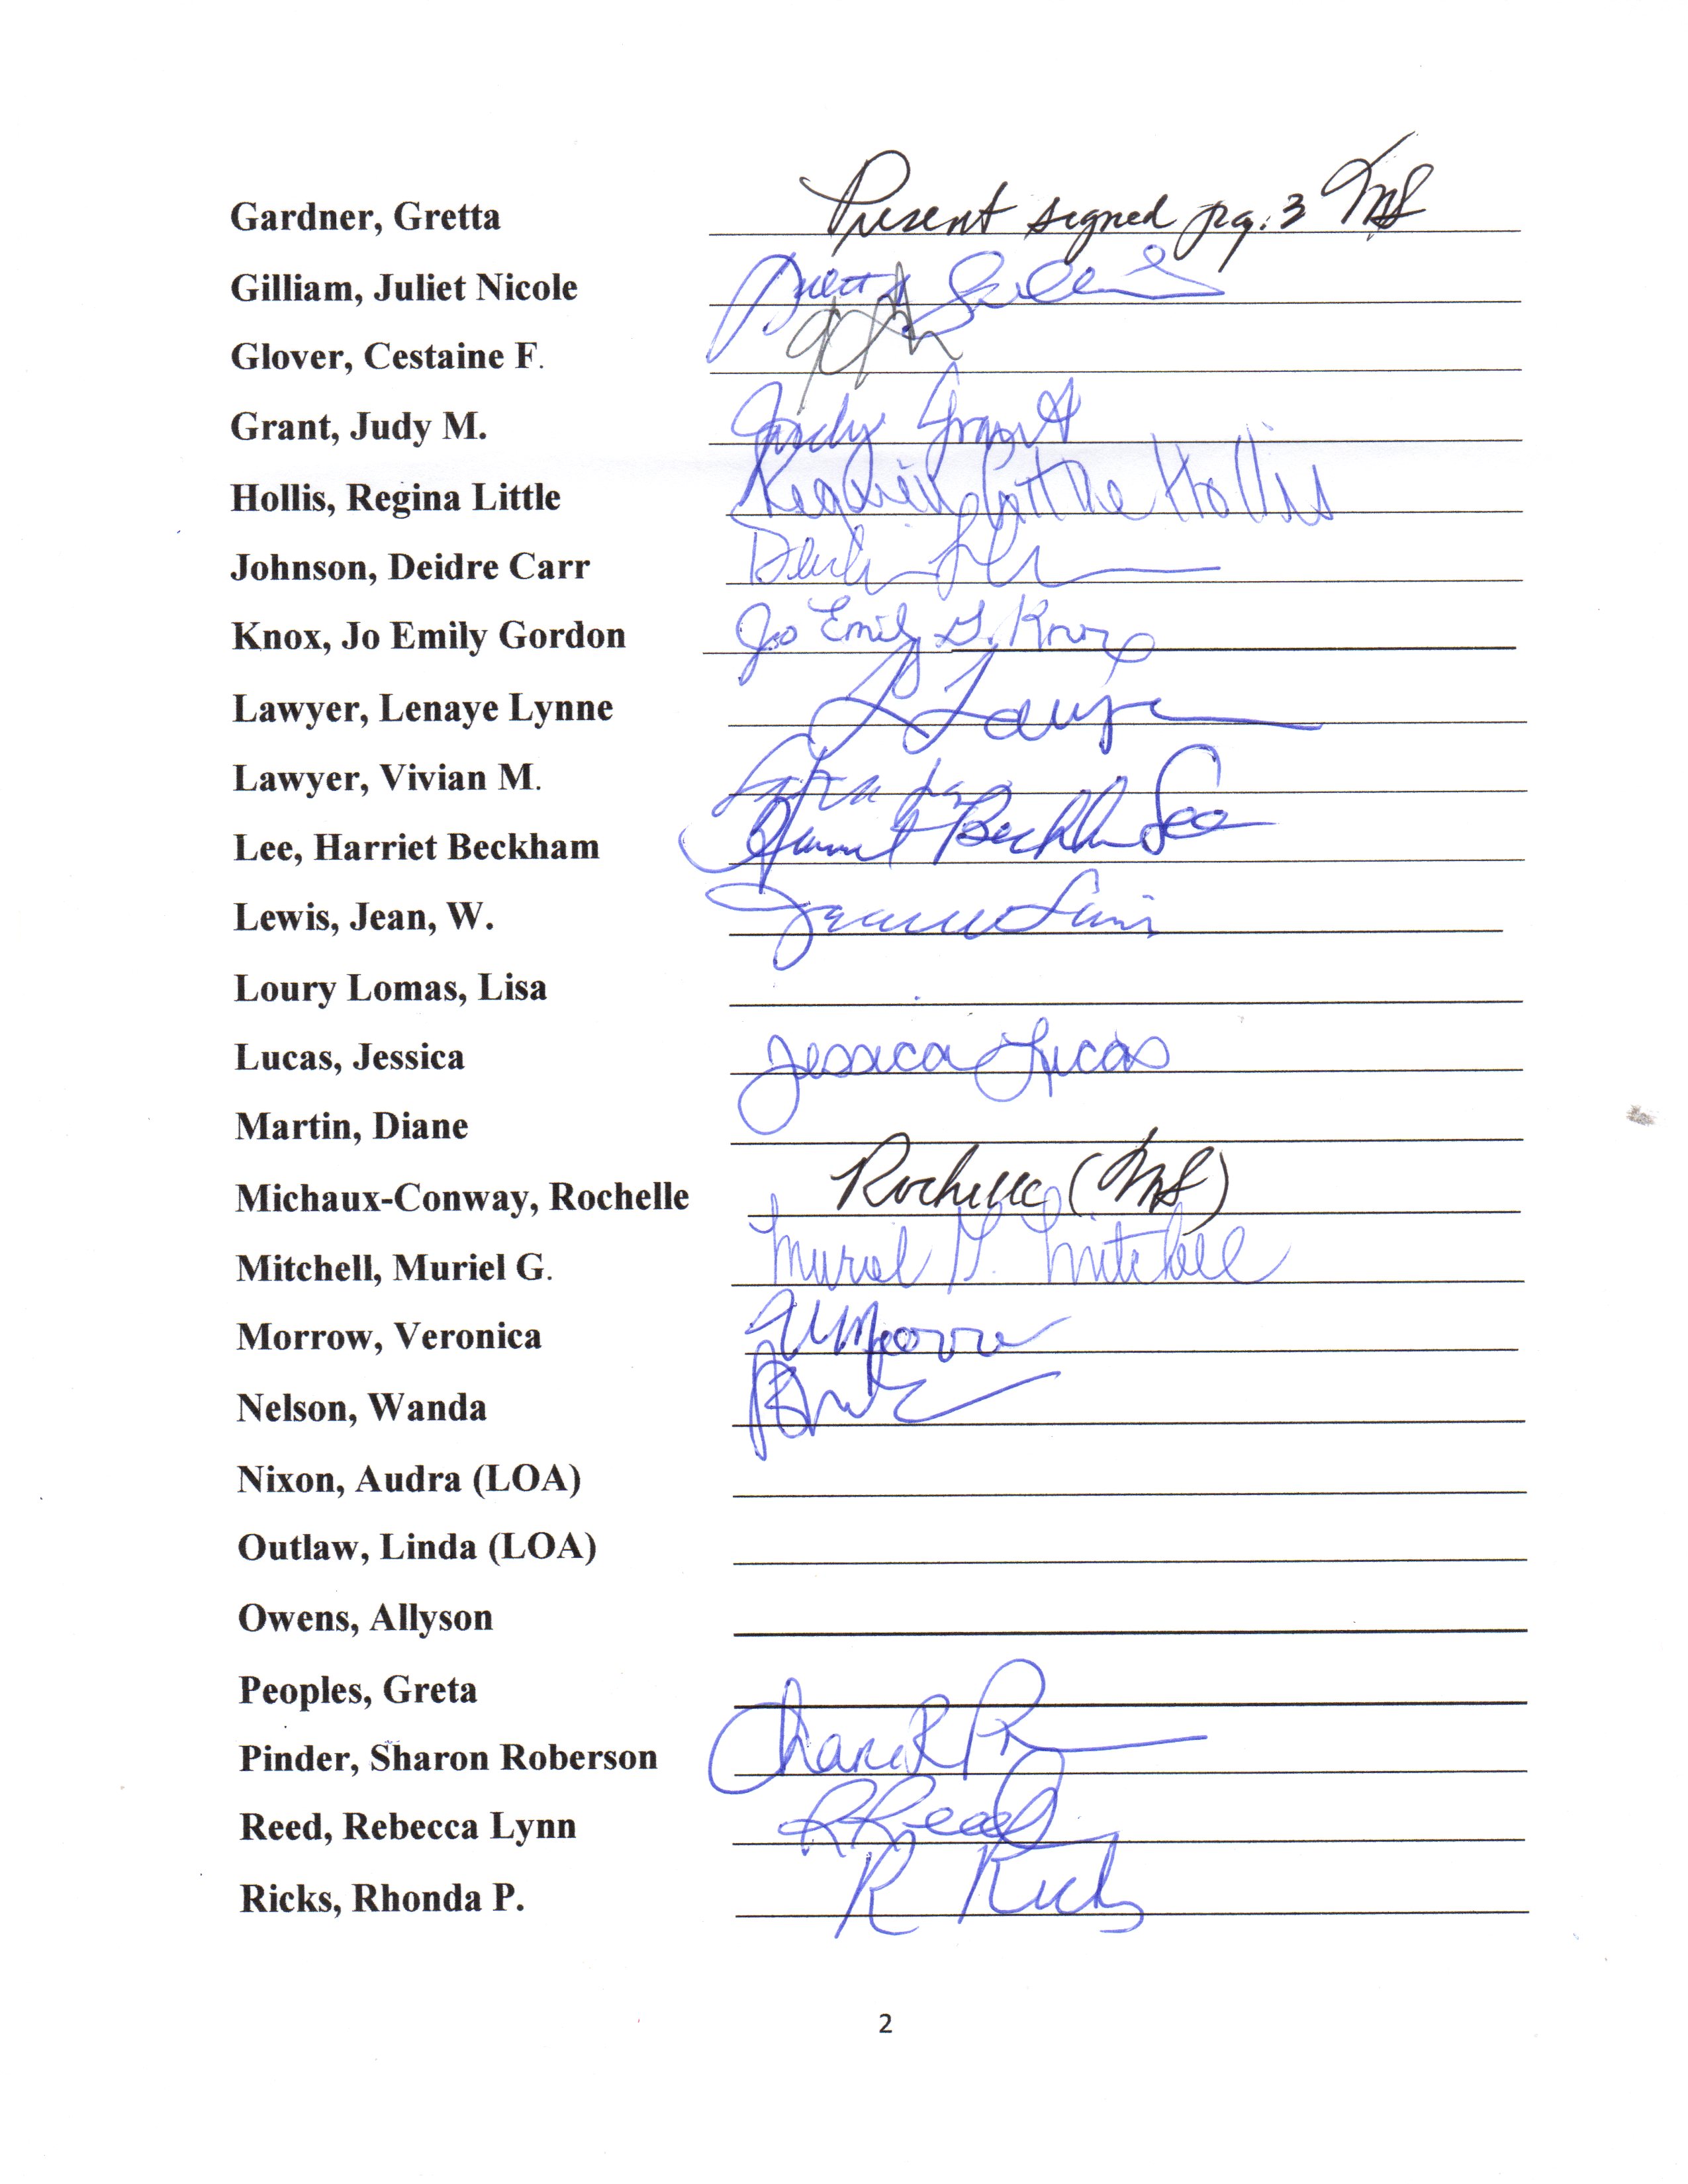 Gardner, Gretta Present signed pg. 3 MS
Gilliam, Juliet Nicole
Glover, Cestaine F.
Grant, Judy M. Judy Grant
Hollis, Regina Little Regina Little Hollis
Johnson, Deidre Carr
Knox, Jo Emily Gordon Jo Emily G. Knox
Lawyer, Lenaye Lynne L Lawyer
Lawyer, Vivian M.
Lee, Harriet Beckham Harriet Beckham Lee
Lewis, Jean, W.
Loury Lomas, Lisa
Lucas, Jessica Jessica Lucas
Martin, Diane
Michaux-Conway, Rochelle Rochelle (MS)
Mitchell, Muriel G. Muriel G. Mitchell
Morrow, Veronica
Nelson, Wanda
Nixon, Audra (LOA)
Outlaw, Linda (LOA)
Owens, Allyson
Peoples, Greta
Pinder, Sharon Roberson
Reed, Rebecca Lynn R Reed
Ricks, Rhonda P. R Ricks
2